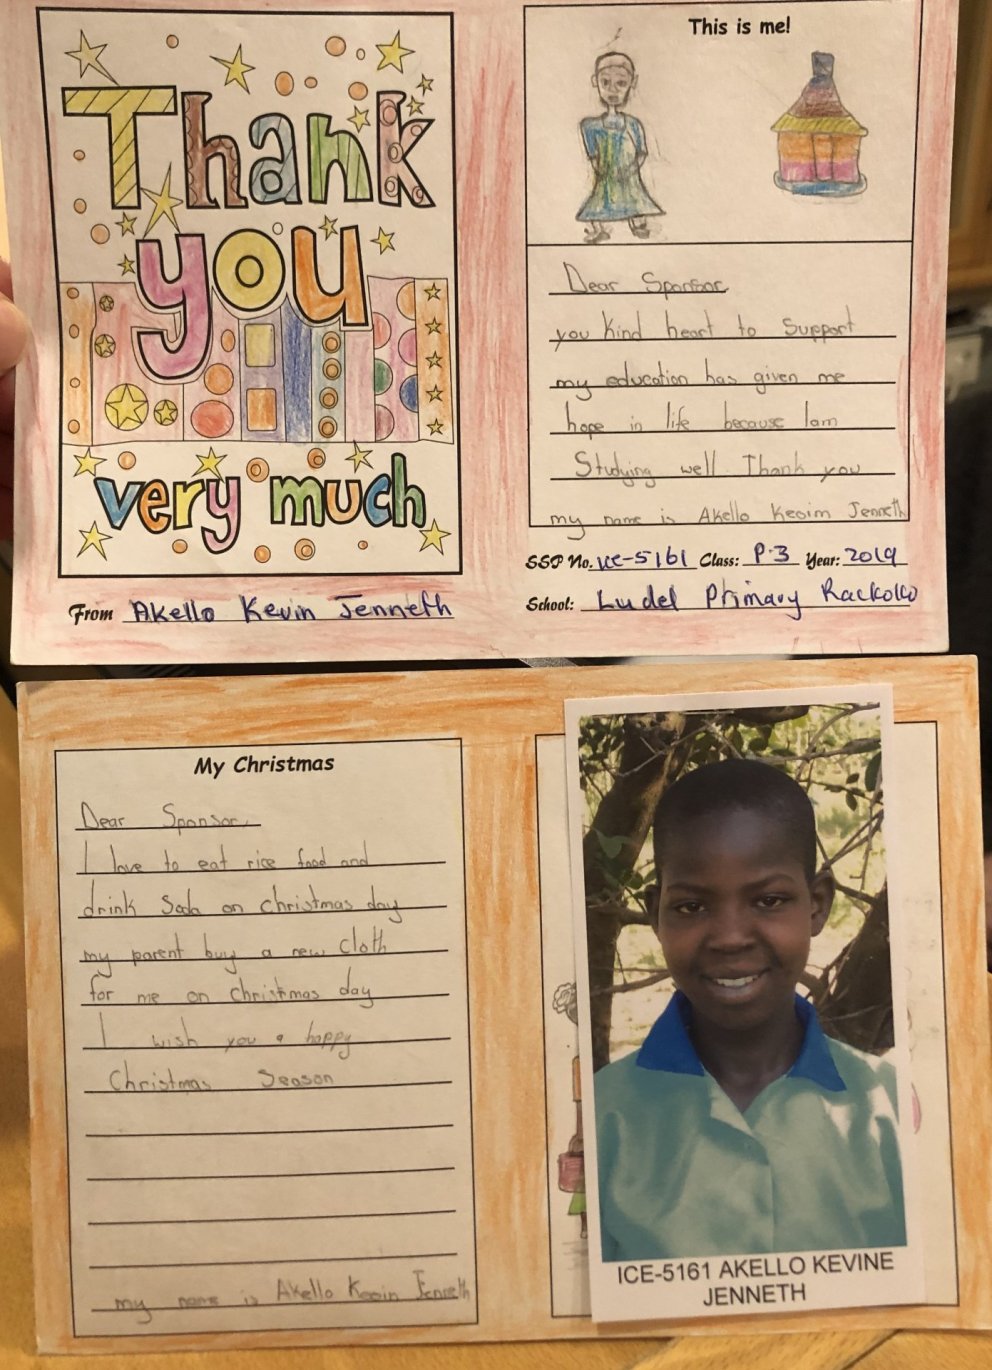 Thank
you
very much
From Akello Kevin Jenneth
This is me!
Dear Sponsor
you kind heart to Support
my education has given me
hope in life because Iam
Studying well. Thank you
my name is Akello Kevin Jenneth
SSP No. ICE-5161 Class: P.3 Year: 2019
School: Ludel Primary Rackoko
My Christmas
Dear Sponsor,
I love to eat rice food and
drink Soda on christmas day
my parent buy a new cloth
for me on christmas day
I wish you a happy
Christmas Season
my name is Akello Kevin Jenneth
ICE-5161 AKELLO KEVINE
JENNETH